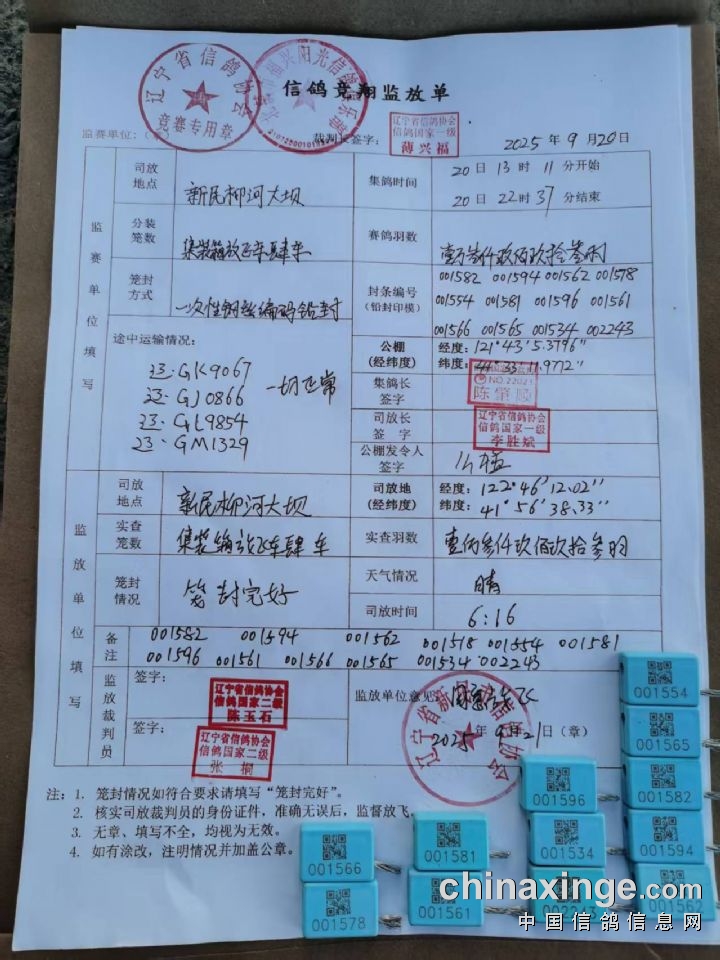 信鸽竞翔监放单
辽宁省信鸽协会
竞赛专用章
监赛单位:(
裁判长签字:
辽宁省信鸽协会
信鸽国家一级
薄兴福
2025年9月20日
监赛单位填写
司放地点
新民柳河大坝
集鸽时间
20日13时11分开始
20日22时37分结束
分装笼数
集装箱放飞车肆车
赛鸽羽数
壹万叁仟玖佰玖拾叁羽
笼封方式
一次性钢丝编码铅封
封条编号
(铅封印模)
001582 001594 001562 001578
001554 001581 001596 001561
001566 001565 001534 002243
途中运输情况:
辽·GK9067
辽·GJ0866
辽·GL9854
辽·GM1329
一切正常
公棚
(经纬度)
经度:121°43′5.3796″
纬度:
集鸽长签字
NO.22023
陈肇顺
司放长签字
辽宁省信鸽协会
信鸽国家一级
李胜斌
公棚发令人签字
监放单位填写
司放地点
新民柳河大坝
司放地
(经纬度)
经度:122°46′12.02″
纬度:41°56′38.33″
实查笼数
集装箱放飞车肆车
实查羽数
壹万叁仟玖佰玖拾叁羽
笼封情况
笼封完好
天气情况
晴
司放时间
6:16
备注
001582 001594 001562 001578 001554 001581
001596 001561 001566 001565 001534 002243
监放裁判员
签字:
辽宁省信鸽协会
信鸽国家二级
陈玉石
签字:
辽宁省信鸽协会
信鸽国家二级
张桐
监放单位意见:
2025年9月21日(章)
注:1. 笼封情况如符合要求请填写“笼封完好”。
2. 核实司放裁判员的身份证件,准确无误后,监督放飞。
3. 无章、填写不全,均视为无效。
4. 如有涂改,注明情况并加盖公章。
001554
001565
001596
001582
001566
001581
001534
001594
001578
001561
002243
001562
chinaxinge.com
中国信鸽信息网